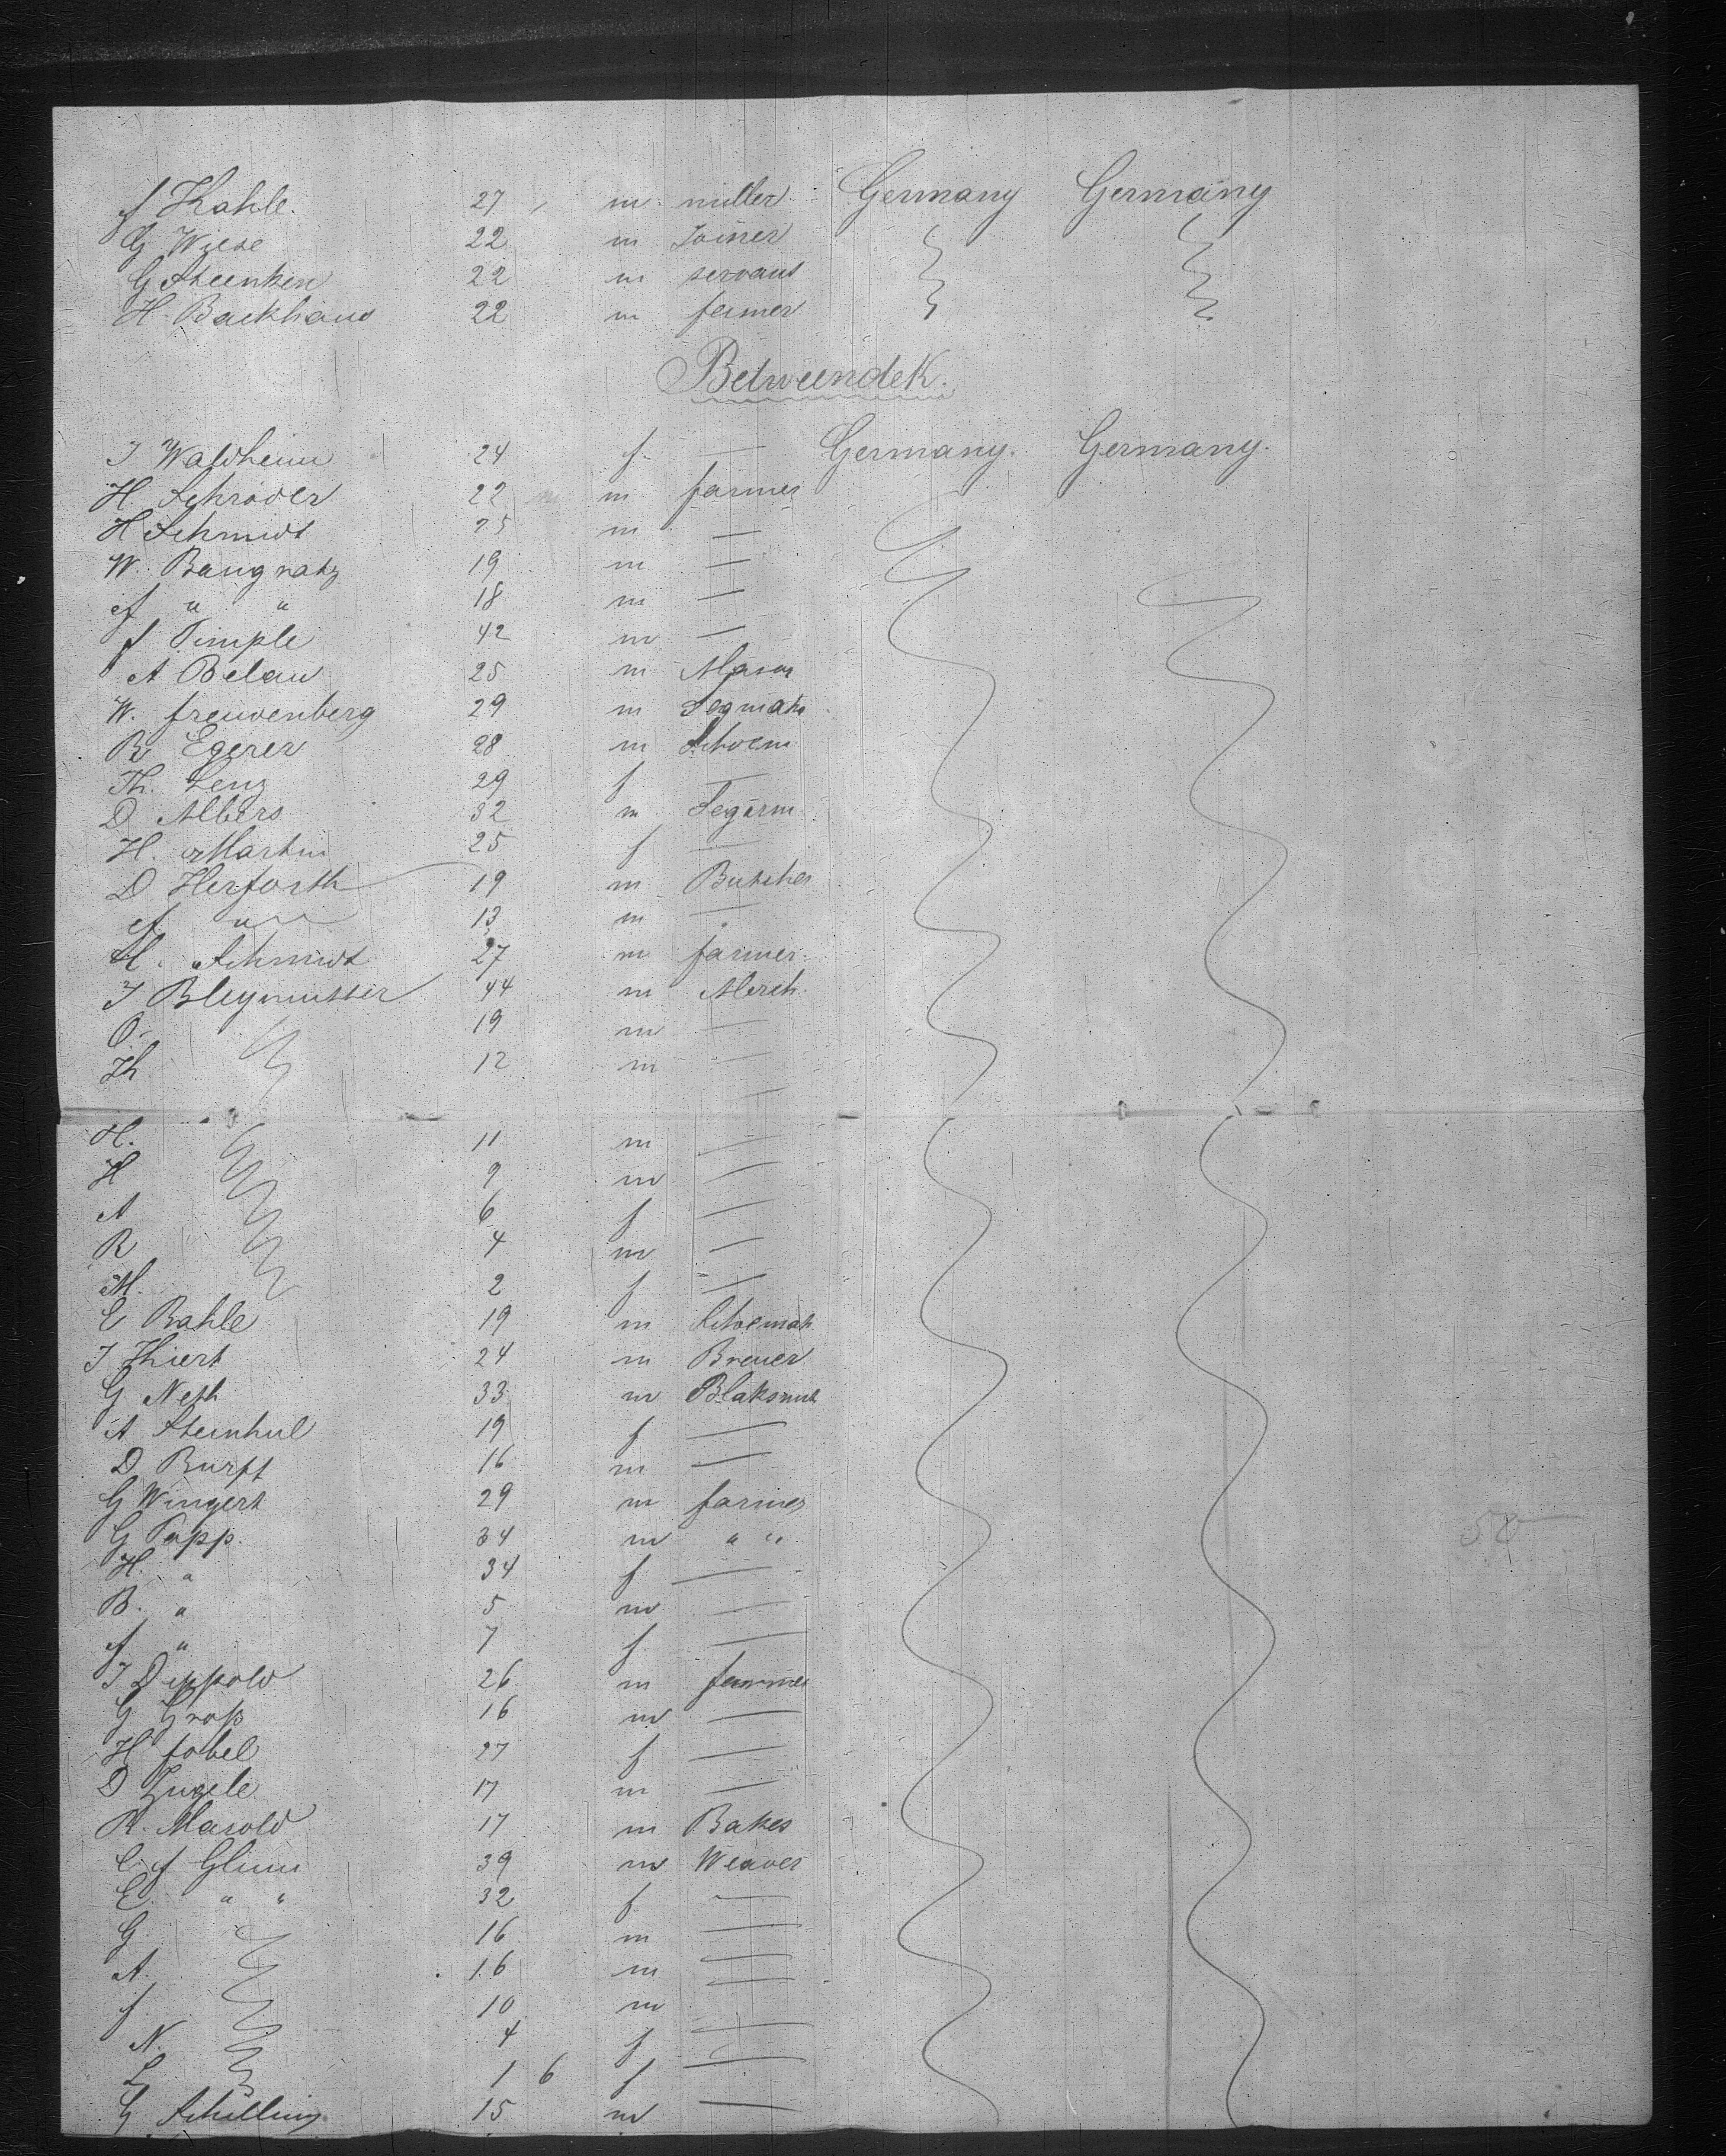 f Kahle. 27 m miller Germany Germany
G Wiese 22 m Joiner
G Steenken 22 m servant
H. Backhaus 22 m farmer
Betweendek.
J Waldheim 24 f — Germany. Germany.
H Schröder 22 m farmer
H Schmidt 25 m —
W. Bangratz 19 m —
A " " 18 m —
f Timple 42 m —
A Belau 25 m Mason
W. freudenberg 29 m Segmak
R Egerer 28 m Schoem
Th. Lenz 29 f —
D Albers 32 m Segarm
H. Martin 25 f —
D Herforth 19 m Butcher
A " 13 m —
H. Schmidt 27 m farmer
J Bleymutter 44 m Merch.
O. 19 m —
Th 12 m —
H. 11 m —
H 9 m —
A 6 f —
R 4 m —
M. 2 f —
E Bahle 19 m Schoemak
J Thiert 24 m Breuer
G Neth 33 m Blaksmit
A Steinhul 19 f —
D Burft 16 m —
G Wingert 29 m farmer
G Popp. 34 m " "
50
H. " 34 f —
B. " 5 m —
A " 7 f —
J Dippold 26 m farmer
G Groß 16 m —
H fobel 27 f —
D Zugele 17 m —
R. Marold 17 m Baker
C f Glimm 39 m Weaver
E. " " 32 f —
G. 16 m —
A. 16 m —
f 10 m —
N. 4 f —
L 1 6 f —
G Schilling 15 m —